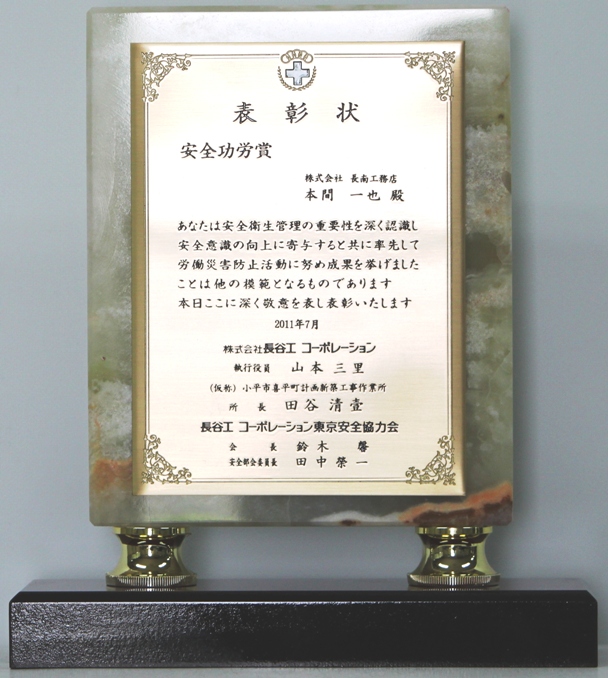 表彰状
安全功労賞
株式会社 長南工務店
本間 一也 殿
あなたは安全衛生管理の重要性を深く認識し
安全意識の向上に寄与すると共に率先して
労働災害防止活動に努め成果を挙げました
ことは他の模範となるものであります
本日ここに深く敬意を表し表彰いたします
2011年7月
株式会社長谷工 コーポレーション
執行役員 山本 三里
(仮称) 小平市喜平町計画新築工事作業所
所長 田谷 清壹
長谷工 コーポレーション東京安全協力会
会長 鈴木 馨
安全部会委員長 田中 榮一